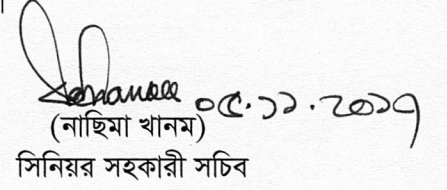 ০৫.১১.২০১৭
(নাছিমা খানম)
সিনিয়র সহকারী সচিব